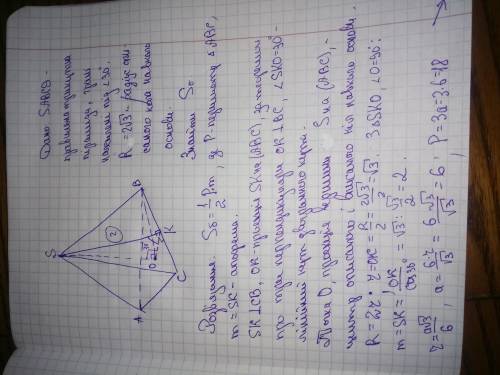 Дано SABCD -
правильна трикутна
піраміда, грані
нахилені під ∠30.
R = 2√3 - радіус опи
саного кола навколо
основи.
Знайти Sб
S
2
A
B
C
O
K
Розв'язання: Sб = 1/2 P·m, де P - периметр △ABC,
m = SK - апофема.
SK ⊥ CB, OK проекція SK на (ABC), за теоремою
про три перпендикуляри OK ⊥ BC, ∠SKO = 30° -
лінійний кут двогранного кута.
Точка O, проекція вершини S на (ABC), -
центр описаного і вписаного кіл навколо основи.
R = 2r. r = OK = R/2 = 2√3/2 = √3. З △SKO, ∠O = 90°:
m = SK = OK/cos30° = √3 : √3/2 = 2.
r = a√3/6, a = 6r/√3 = 6√3/√3 = 6, P = 3a = 3·6 = 18